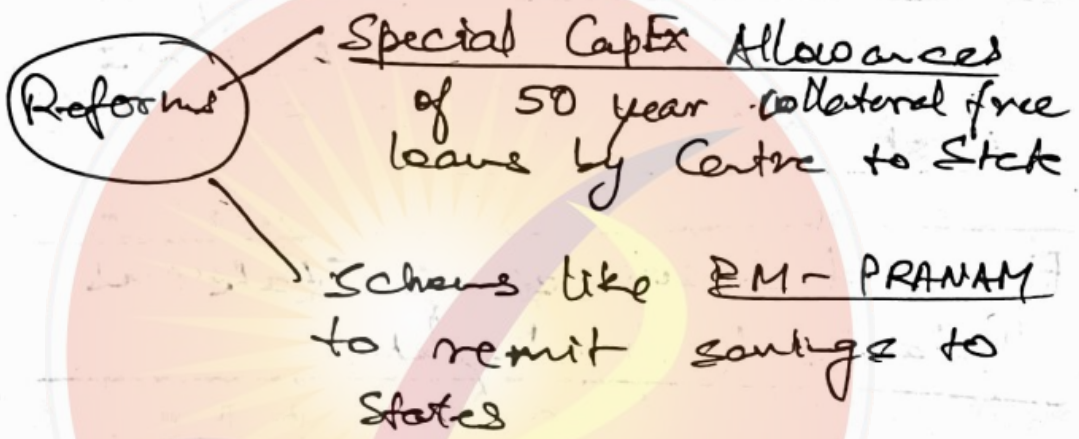 Special CapEx Allowances
Reforms
of 50 year collateral free
loans by Centre to State
Schems like PM- PRANAM
to remit savings to
States